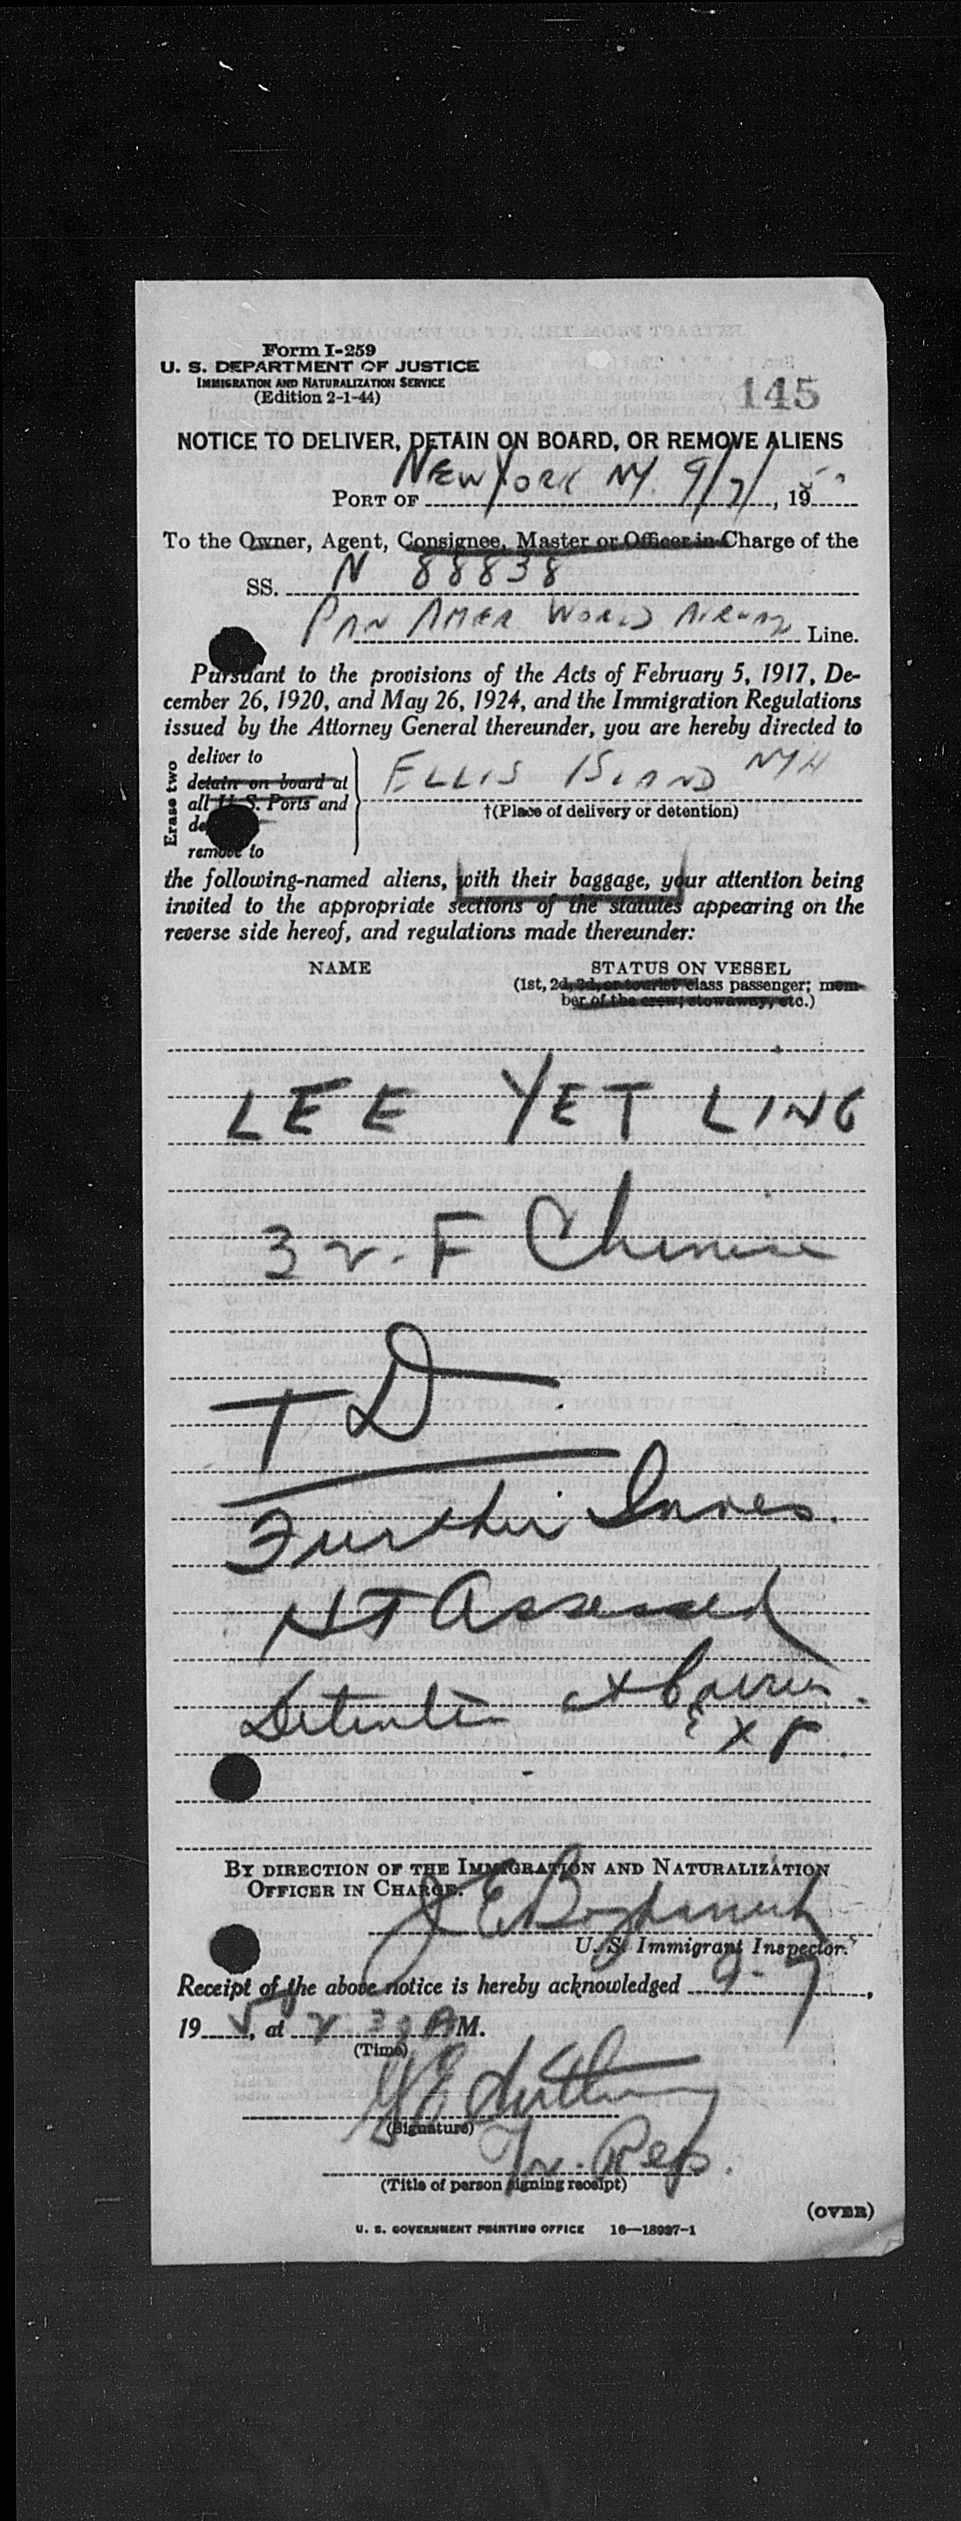 Form I-259
U. S. DEPARTMENT OF JUSTICE
IMMIGRATION AND NATURALIZATION SERVICE
(Edition 2-1-44)
145
NOTICE TO DELIVER, DETAIN ON BOARD, OR REMOVE ALIENS
PORT OF NEW YORK NY. 9/7/, 195
To the Owner, Agent, Consignee, Master or Officer in Charge of the
SS. N 88838
PAN AMER WORLD AIRWAY Line.
Pursuant to the provisions of the Acts of February 5, 1917, De-
cember 26, 1920, and May 26, 1924, and the Immigration Regulations
issued by the Attorney General thereunder, you are hereby directed to
Erase two
deliver to
detain on board at
all U. S. Ports and
remove to
ELLIS ISLAND NYH
†(Place of delivery or detention)
the following-named aliens, with their baggage, your attention being
invited to the appropriate sections of the statutes appearing on the
reverse side hereof, and regulations made thereunder:
NAME
STATUS ON VESSEL
(1st, 2d, 3d, or tourist class passenger; mem-
ber of the crew; stowaway, etc.)
LEE YET LING
F Chinese
TD
Further Inves.
HT Assessed
Detention
Exp.
BY DIRECTION OF THE IMMIGRATION AND NATURALIZATION
OFFICER IN CHARGE.
J E
U. S. Immigrant Inspector.
Receipt of the above notice is hereby acknowledged 9-7,
19, at M.
(Time)
(Signature)
Rep.
(Title of person signing receipt)
(OVER)
U. S. GOVERNMENT PRINTING OFFICE 16—18987-1